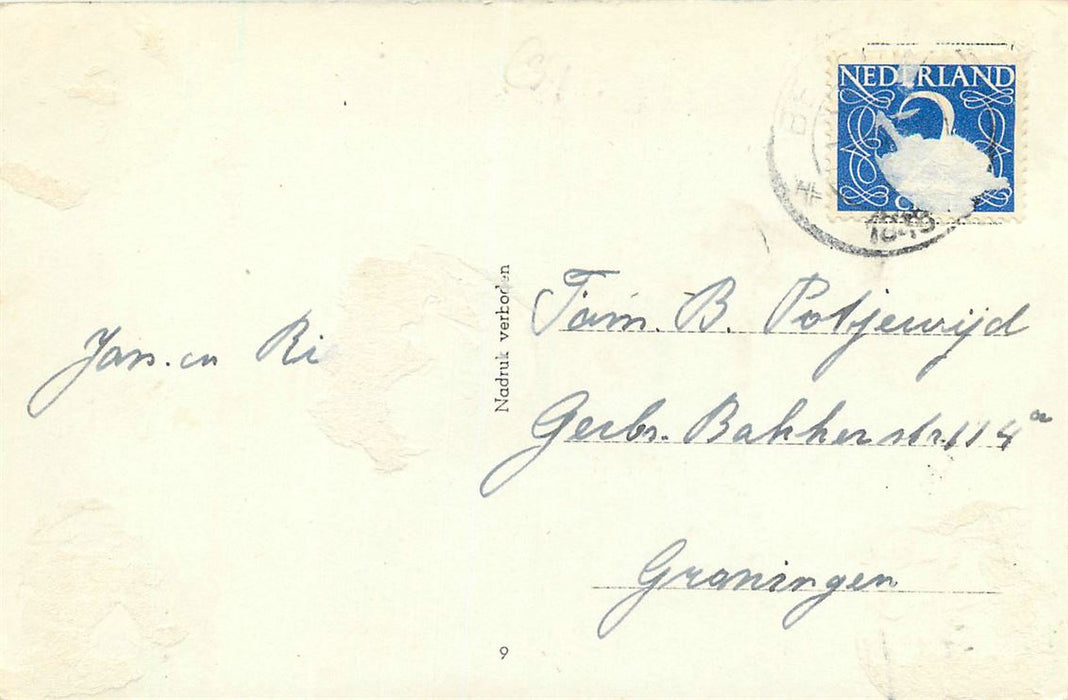 NEDERLAND
1948
Jan. en Rie
Nadruk verboden
Fam. B. Potjewijd
Gerbr. Bakkerstr. 114a
Groningen
9